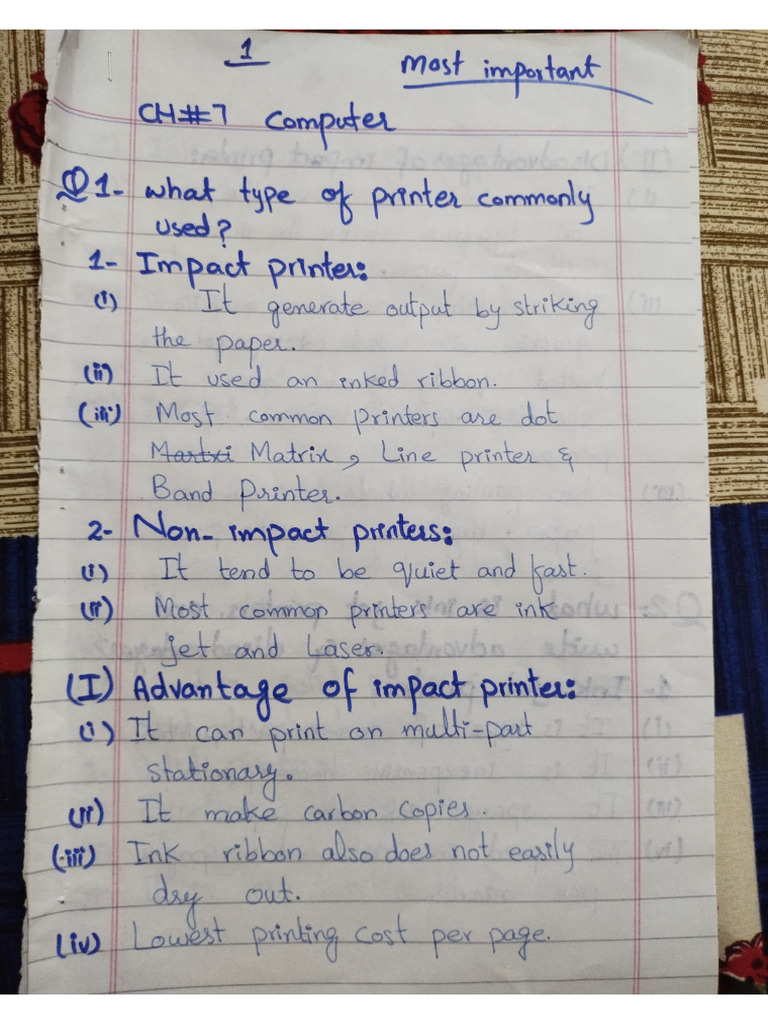 1
Most important
CH#7 Computer
Q1- what type of printer commonly
used?
1- Impact printer:
(i) It generate output by striking
the paper.
(ii) It used an inked ribbon.
(iii) Most common printers are dot
Martxi Matrix, Line printer &
Band Printer.
2- Non-impact printers:
(i) It tend to be quiet and fast.
(ii) Most common printers are ink
jet and Laser.
(I) Advantage of impact printer:
(i) It can print on multi-part
stationary.
(ii) It make carbon copies.
(iii) Ink ribbon also does not easily
dry out.
(iv) Lowest printing cost per page.